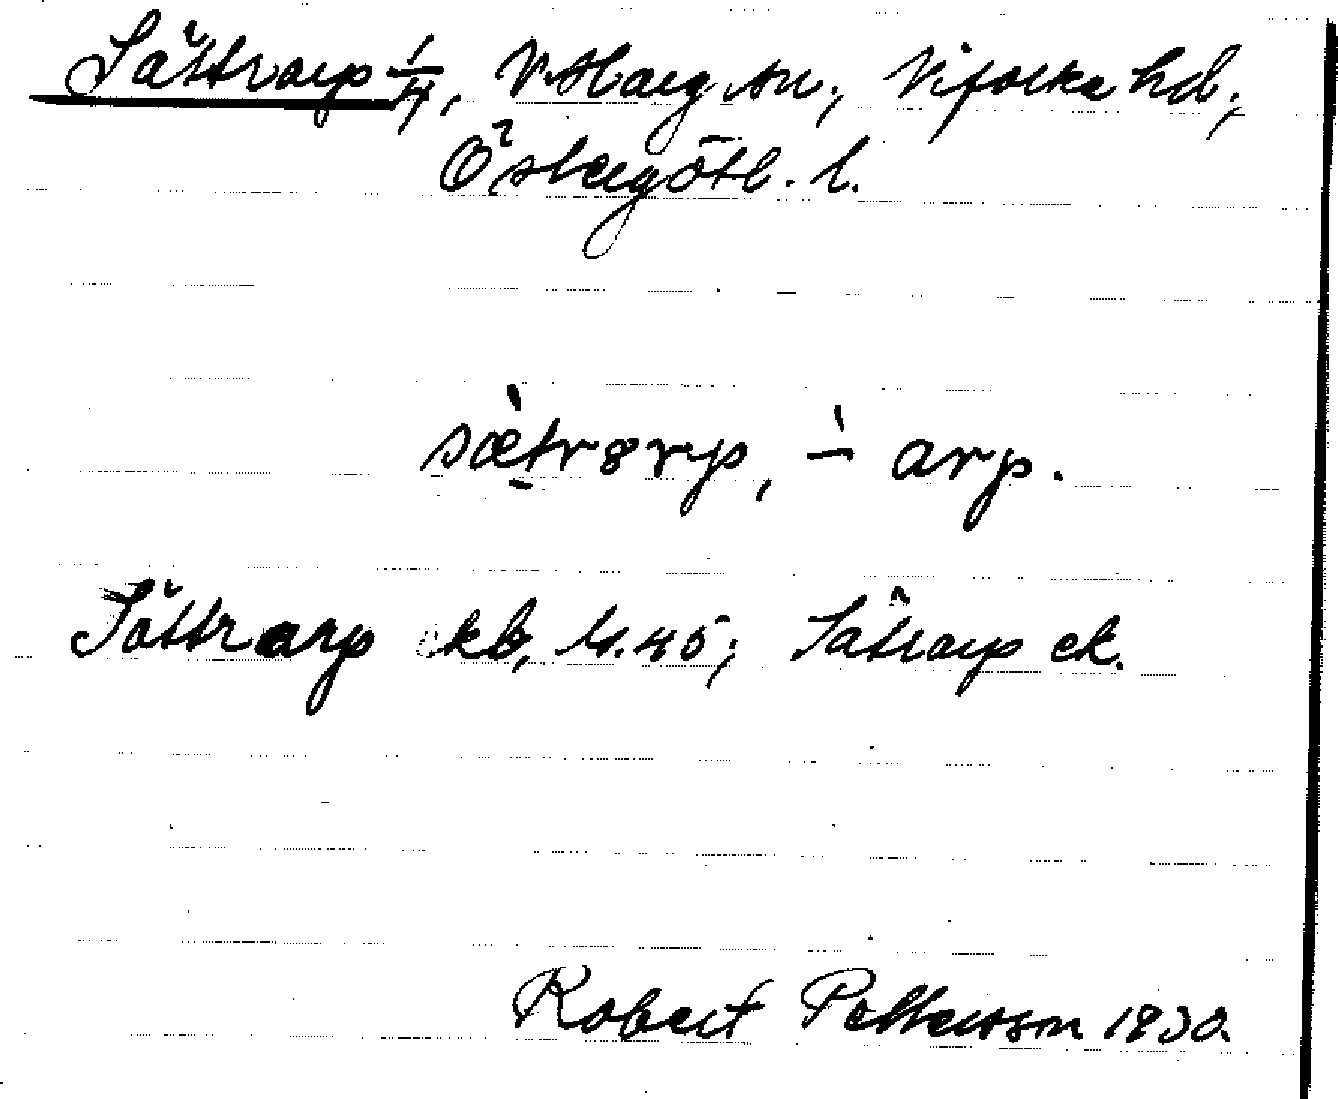 Sättrarp 1/4, V. Harg sn., Vifolka hd.,
Östergötl. l.
sæ̀trərp, -̀ arp.
Sättrarp kb, M. 45; Sätrarp ek.
Robert Pettersson 1930.